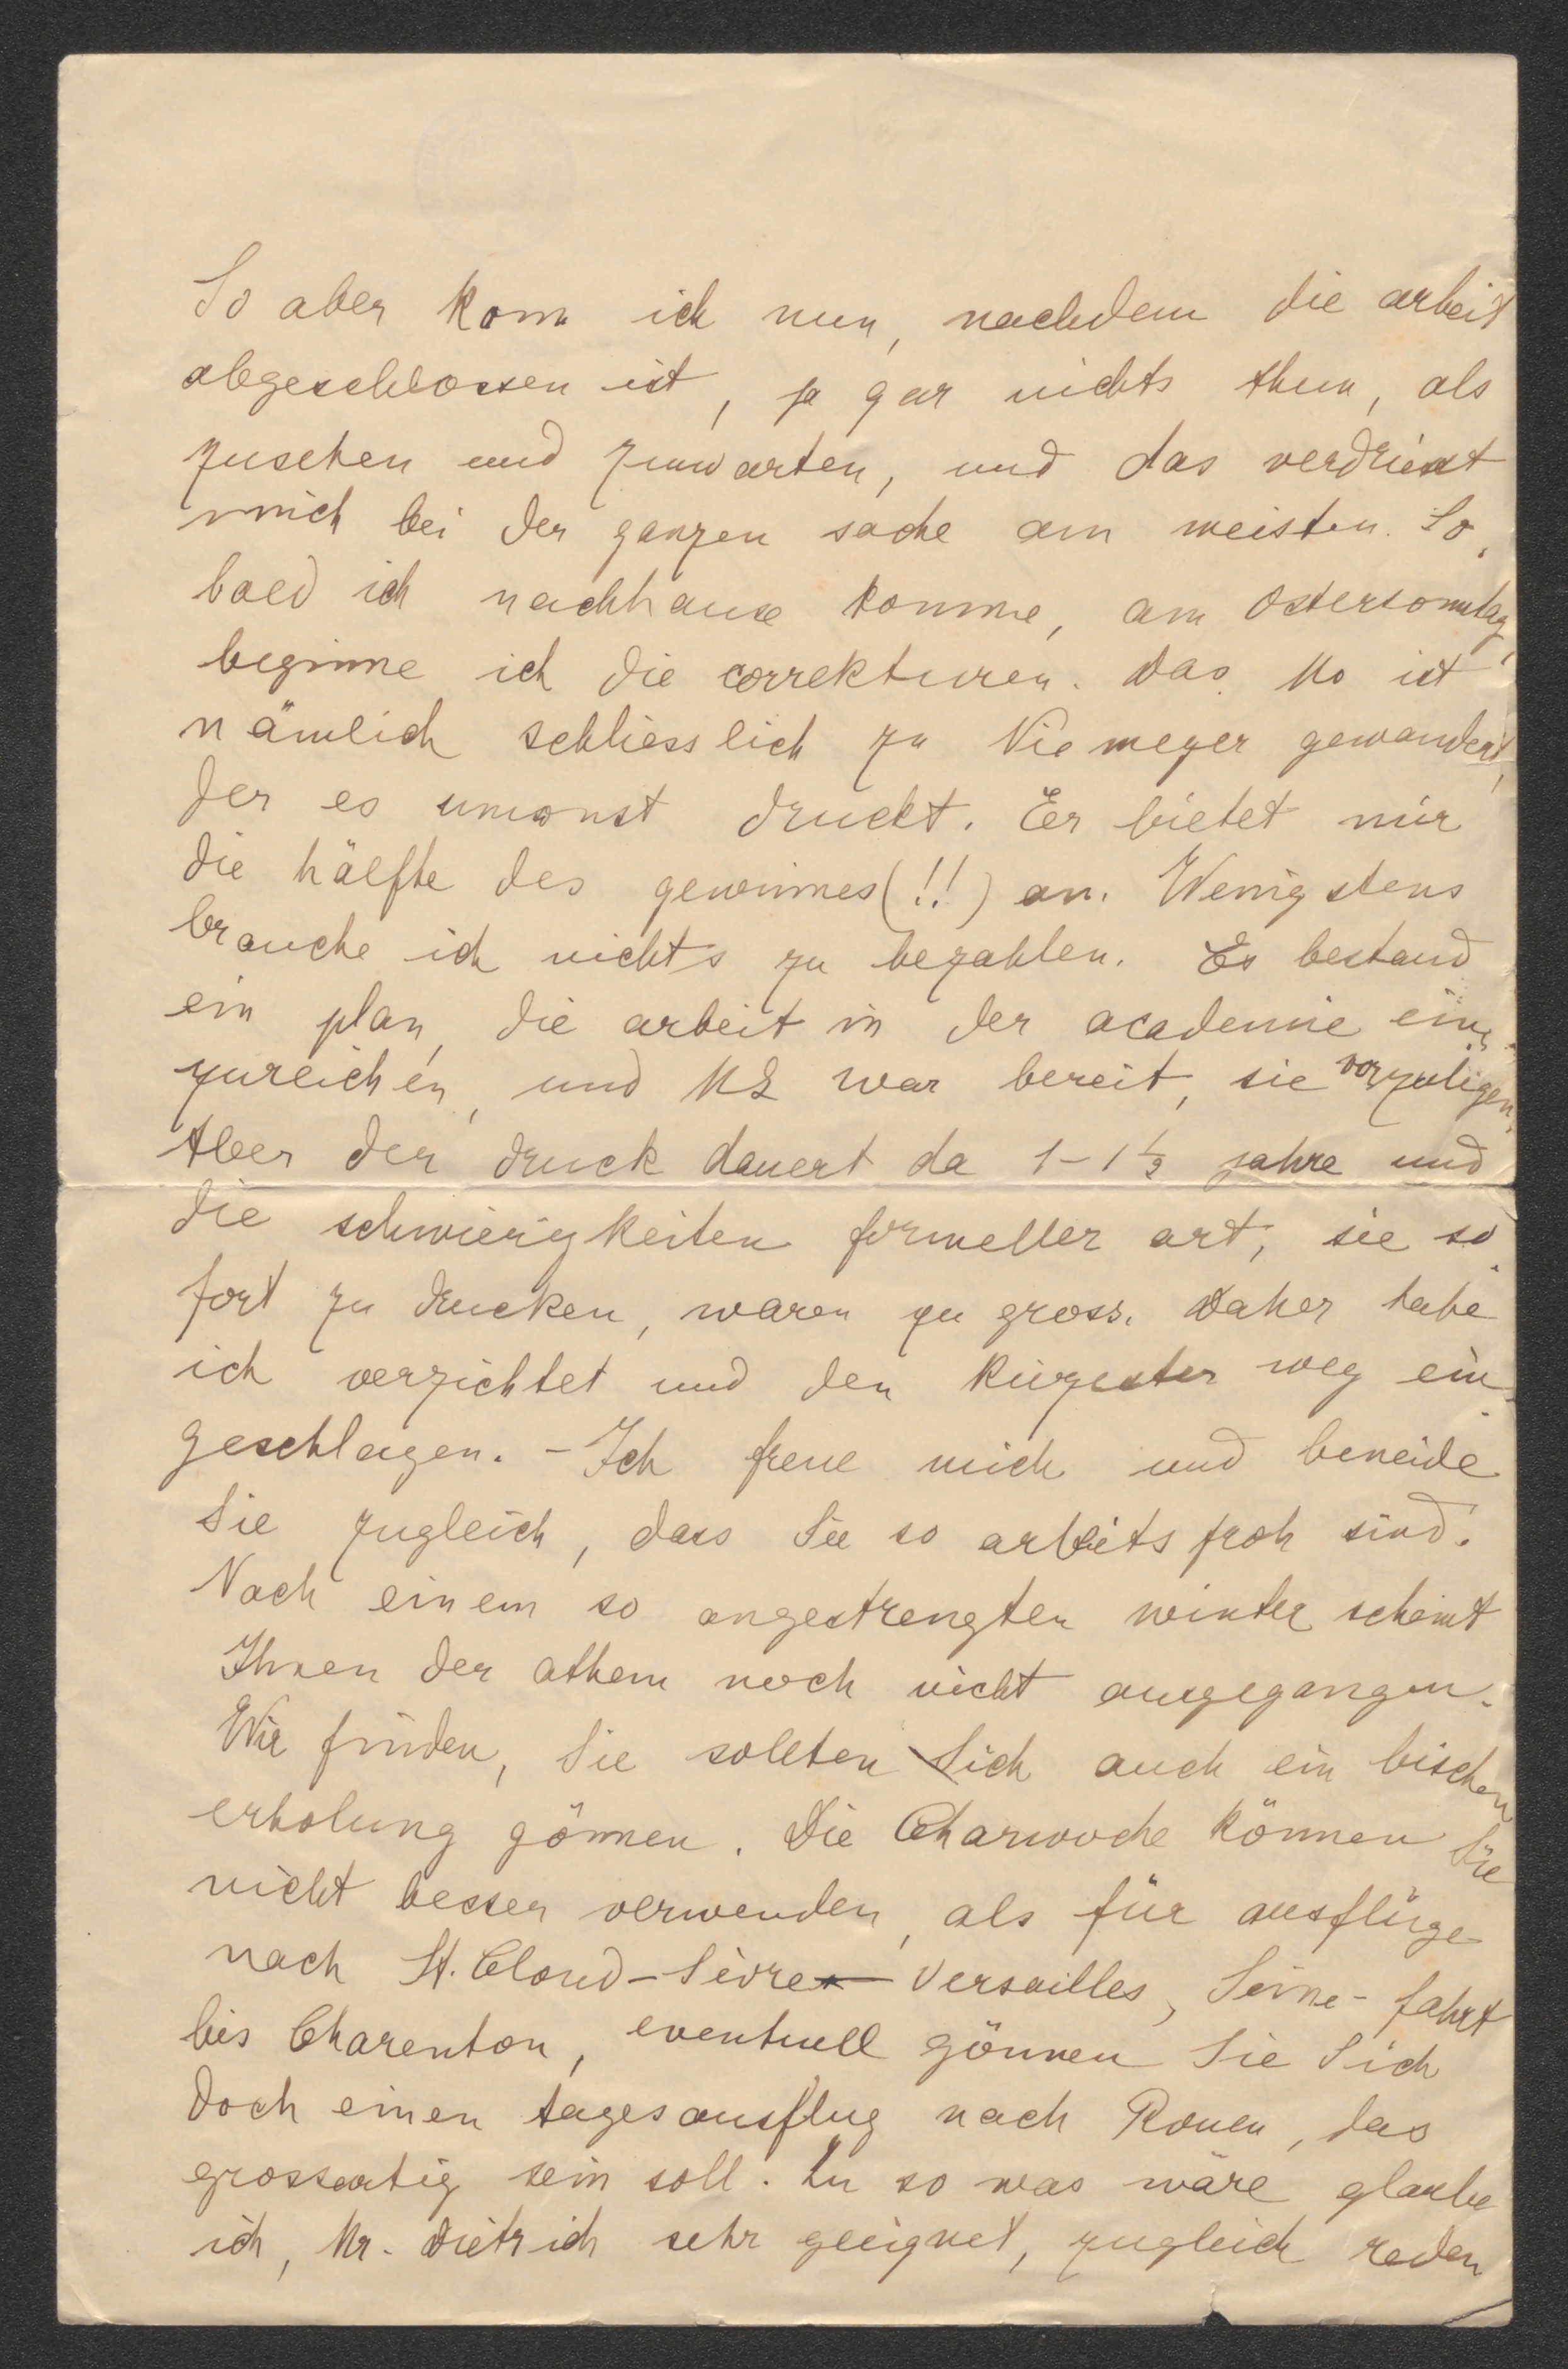 So aber kann ich nun, nachdem die arbeit
abgeschlossen ist, ja gar nichts thun, als
zusehen und zuwarten, und das verdriest
mich bei der ganzen sache am meisten. So-
bald ich nachhause komme, am Ostersonntag,
beginne ich die correkturen. Das Ms ist
nämlich schliesslich zu Niemeyer gewandert,
der es umsonst druckt. Er bietet mir
die hälfte des gewinnes (!!) an. Wenigstens
brauche ich nichts zu bezahlen. Es bestand
ein plan, die arbeit in der academie ein-
zureichen, und ML war bereit, sie vorzulegen.
Aber der druck dauert da 1-1½ jahre und
die schwierigkeiten formeller art, sie so-
fort zu drucken, waren zu gross. Daher habe
ich verzichtet und den kürzesten weg ein-
geschlagen. - Ich freue mich und beneide
Sie zugleich, dass Sie so arbeitsfroh sind.
Nach einem so angestrengten winter scheint
Ihnen der athem noch nicht ausgegangen.
Wir finden, Sie sollten Sich auch ein bischen
erholung gönnen. Die Charwoche können Sie
nicht besser verwenden, als für ausflüge
nach St. Cloud-Sèvres-Versailles, Seine-fahrt
bis Charenton, eventuell gönnen Sie Sich
doch einen tagesausflug nach Rouen, das
grossartig sein soll. Zu so was wäre glaube
ich, Mr. Dietrich sehr geeignet, zugleich reden